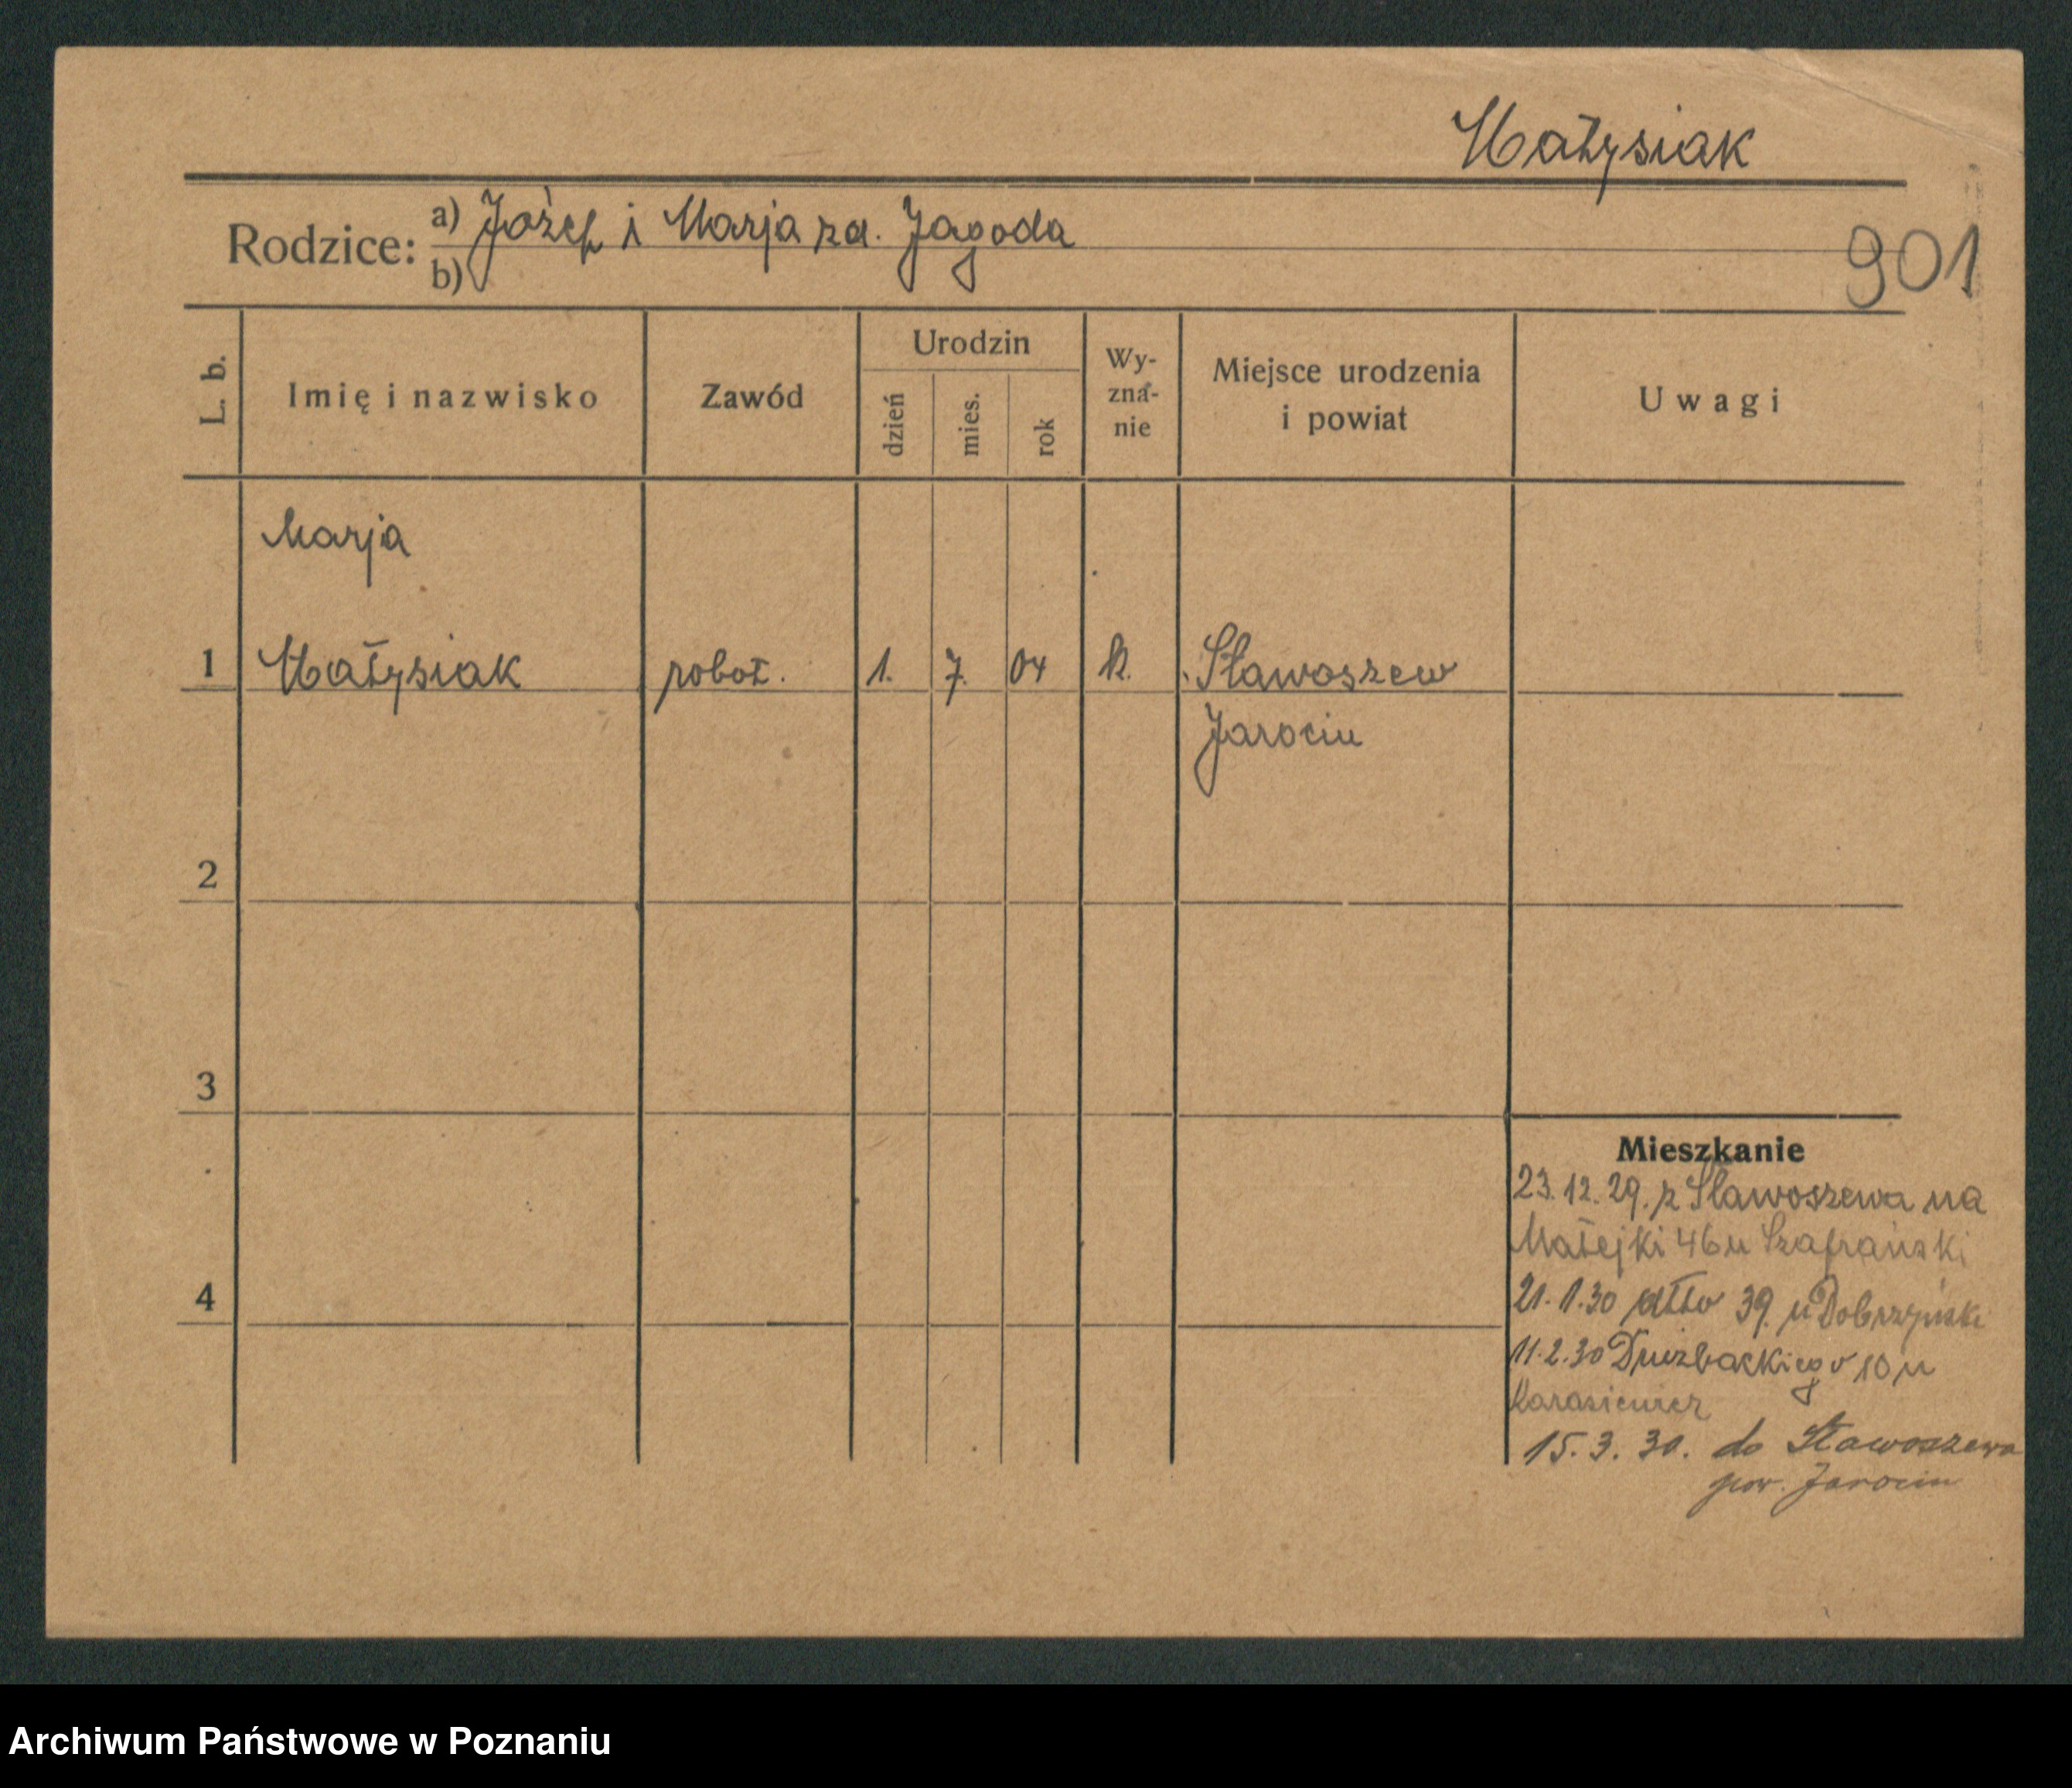 Matysiak
Rodzice: a) Józef i Marja zd. Jagoda
b)
901
L. b. Imię i nazwisko Zawód Urodzin dzień mies. rok Wy-zna-nie Miejsce urodzenia i powiat Uwagi
Marja
1 Matysiak robot. 1. 7. 04 k. Sławoszew
Jarocin
2
3
Mieszkanie
23.12.29. z Sławoszewa na
Matejki 46 u Szafrański
4
21.1.30 dtto 39. u Dobrzyński
11.2.30 Drużbackiego 10 u
Karasiewicz
15.3.30. do Sławoszewa
pow. Jarocin
Archiwum Państwowe w Poznaniu